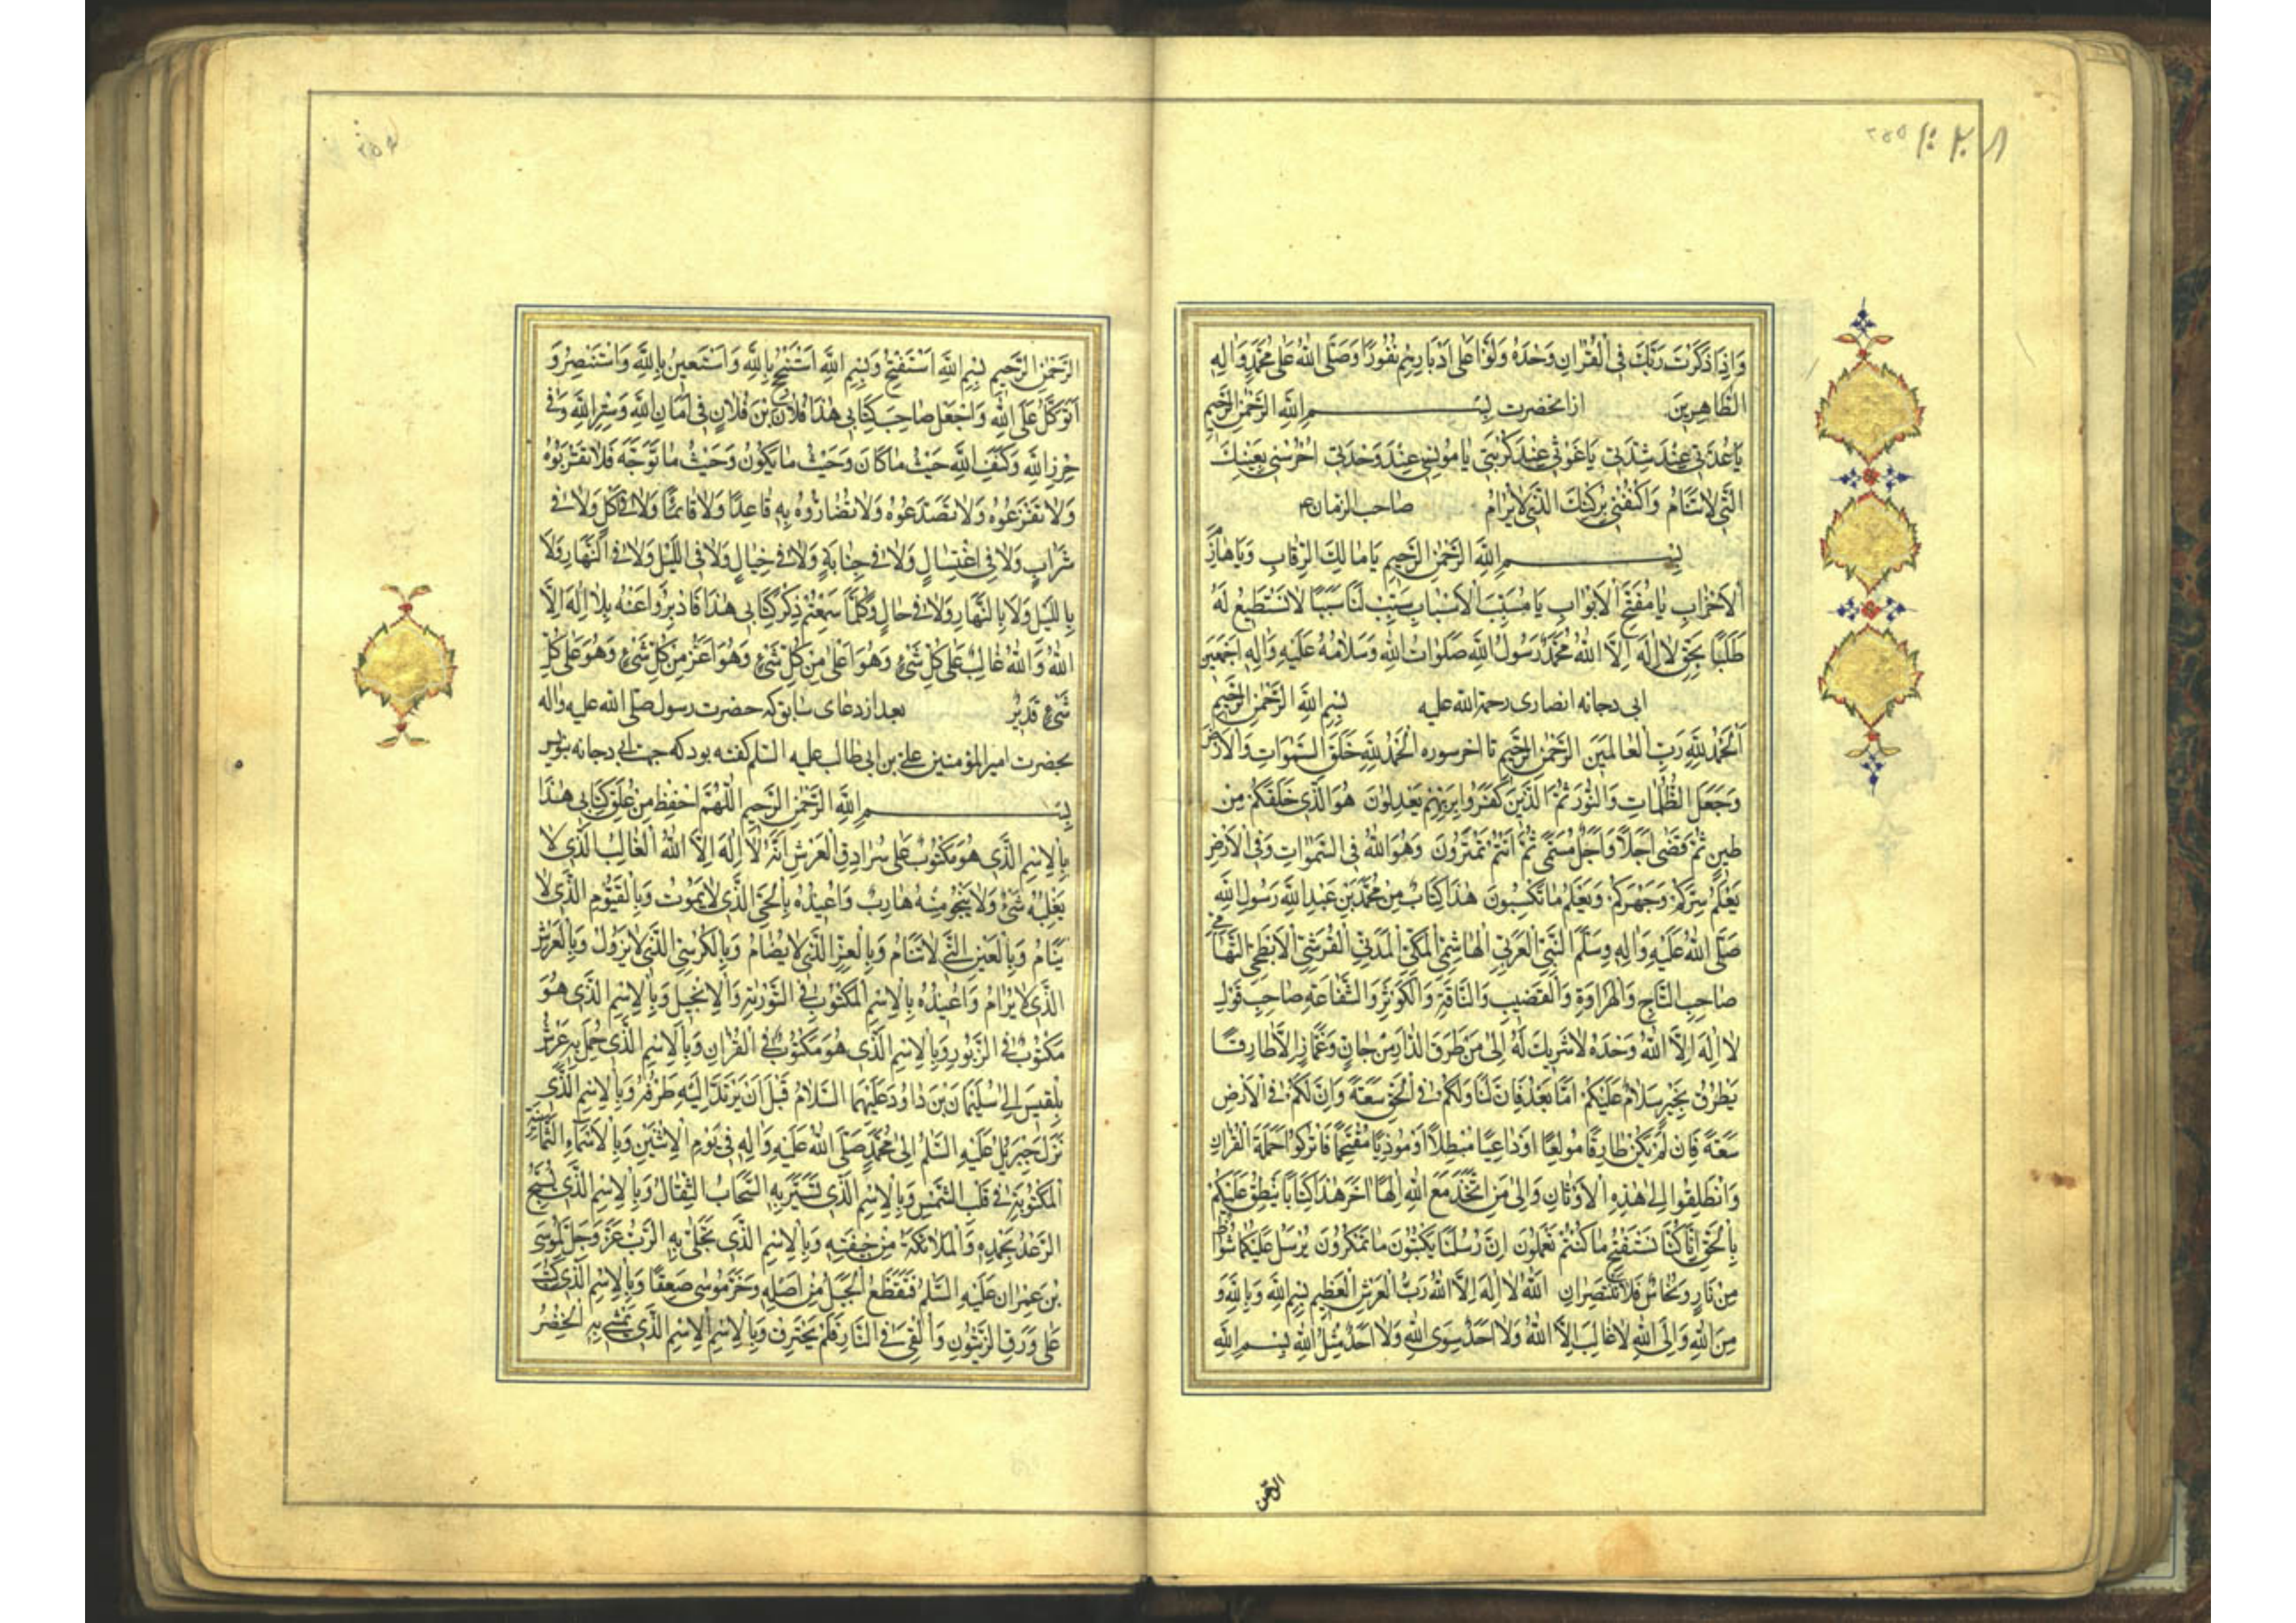 وَاِذَا ذَكَرْتَ رَبَّكَ فِي الْقُرْاٰنِ وَحْدَهُ وَلَّوْا عَلٰى اَدْبَارِهِمْ نُفُورًا وَصَلَّى اللّٰهُ عَلٰى مُحَمَّدٍ وَاٰلِهِ
الطَّاهِرِينَ ازانحضرت بِسْمِ اللّٰهِ الرَّحْمٰنِ الرَّحِيمِ
يَا عُدَّتِي عِنْدَ شِدَّتِي يَا غَوْثِي عِنْدَ كُرْبَتِي يَا مُونِسِي عِنْدَ وَحْدَتِي اُحْرُسْنِي بِعَيْنِكَ
الَّتِي لَا تَنَامُ وَاكْنُفْنِي بِرُكْنِكَ الَّذِي لَا يُرَامُ صاحب الزمان ع
بِسْمِ اللّٰهِ الرَّحْمٰنِ الرَّحِيمِ يَا مَالِكَ الرِّقَابِ وَيَا هَازِمَ
الْاَحْزَابِ يَا مُفَتِّحَ الْاَبْوَابِ يَا مُسَبِّبَ الْاَسْبَابِ سَبِّبْ لَنَا سَبَبًا لَا نَسْتَطِيعُ لَهُ
طَلَبًا بِحَقِّ لَا اِلٰهَ اِلَّا اللّٰهُ مُحَمَّدٌ رَسُولُ اللّٰهِ صَلَوَاتُ اللّٰهِ وَسَلَامُهُ عَلَيْهِ وَاٰلِهِ اَجْمَعِينَ
ابی دجانه انصاری رحمة الله عليه بِسْمِ اللّٰهِ الرَّحْمٰنِ الرَّحِيمِ
اَلْحَمْدُ لِلّٰهِ رَبِّ الْعَالَمِينَ الرَّحْمٰنِ الرَّحِيمِ تا اخر سوره اَلْحَمْدُ لِلّٰهِ خَلَقَ السَّمٰوَاتِ وَالْاَرْضَ
وَجَعَلَ الظُّلُمَاتِ وَالنُّورَ ثُمَّ الَّذِينَ كَفَرُوا بِرَبِّهِمْ يَعْدِلُونَ هُوَ الَّذِي خَلَقَكُمْ مِنْ
طِينٍ ثُمَّ قَضٰى اَجَلًا وَاَجَلٌ مُسَمًّى ثُمَّ اَنْتُمْ تَمْتَرُونَ وَهُوَ اللّٰهُ فِي السَّمٰوَاتِ وَفِي الْاَرْضِ
يَعْلَمُ سِرَّكُمْ وَجَهْرَكُمْ وَيَعْلَمُ مَا تَكْسِبُونَ هٰذَا كِتَابٌ مِنْ مُحَمَّدِ بْنِ عَبْدِ اللّٰهِ رَسُولِ اللّٰهِ
صَلَّى اللّٰهُ عَلَيْهِ وَاٰلِهِ وَسَلَّمَ النَّبِيِّ الْعَرَبِيِّ الْهَاشِمِيِّ الْمَكِّيِّ الْمَدَنِيِّ الْقُرَشِيِّ الْاَبْطَحِيِّ التِّهَامِيِّ
صَاحِبِ التَّاجِ وَالْهِرَاوَةِ وَالْقَضِيبِ وَالنَّاقَةِ وَالْكَوْثَرِ وَالشَّفَاعَةِ صَاحِبِ قَوْلِ
لَا اِلٰهَ اِلَّا اللّٰهُ وَحْدَهُ لَا شَرِيكَ لَهُ اِلٰى مَنْ طَرَقَ الدَّارَ مِنْ جَانٍّ وَعُمَّارٍ اِلَّا طَارِقًا
يَطْرُقُ بِخَيْرٍ سَلَامٌ عَلَيْكُمْ اَمَّا بَعْدُ فَاِنَّ لَنَا وَلَكُمْ فِي الْحَقِّ سَعَةً وَاِنَّ لَكُمْ فِي الْاَرْضِ
سَعَةً فَاِنْ لَمْ يَكُنْ طَارِقًا مُولِعًا اَوْ دَاعِيًا مُبْطِلًا اَوْ مُوذِيًا مُقْتَحِمًا فَاتْرُكُوا حَمَلَةَ الْقُرْاٰنِ
وَانْطَلِقُوا اِلٰى هٰذِهِ الْاَوْثَانِ وَاِلٰى مَنِ اتَّخَذَ مَعَ اللّٰهِ اِلٰهًا اٰخَرَ هٰذَا كِتَابُنَا يَنْطِقُ عَلَيْكُمْ
بِالْحَقِّ اِنَّا كُنَّا نَسْتَنْسِخُ مَا كُنْتُمْ تَعْمَلُونَ اِنَّ رُسُلَنَا يَكْتُبُونَ مَا تَمْكُرُونَ يُرْسَلُ عَلَيْكُمَا شُوَاظٌ
مِنْ نَارٍ وَنُحَاسٌ فَلَا تَنْتَصِرَانِ اَللّٰهُ لَا اِلٰهَ اِلَّا اللّٰهُ رَبُّ الْعَرْشِ الْعَظِيمِ بِسْمِ اللّٰهِ وَبِاللّٰهِ وَ
مِنَ اللّٰهِ وَاِلَى اللّٰهِ لَا غَالِبَ اِلَّا اللّٰهُ وَلَا اَحَدٌ سِوَى اللّٰهِ وَلَا اَحَدٌ مِثْلُ اللّٰهِ بِسْمِ اللّٰهِ
الرحمن
الرَّحْمٰنِ الرَّحِيمِ بِسْمِ اللّٰهِ اَسْتَفْتِحُ وَبِسْمِ اللّٰهِ اَسْتَنْجِحُ بِاللّٰهِ وَاَسْتَعِينُ بِاللّٰهِ وَاَسْتَنْصِرُ وَ
اَتَوَكَّلُ عَلَى اللّٰهِ وَاجْعَلْ صَاحِبَ كِتَابِي هٰذَا فُلَانَ بْنَ فُلَانٍ فِي اَمَانِ اللّٰهِ وَسِتْرِ اللّٰهِ وَفِي
حِرْزِ اللّٰهِ وَكَنَفِ اللّٰهِ حَيْثُ مَا كَانَ وَحَيْثُ مَا يَكُونُ وَحَيْثُ مَا تَوَجَّهَ فَلَا تَقْرَبُوهُ
وَلَا تُفَزِّعُوهُ وَلَا تُصَدِّعُوهُ وَلَا تُضَارُّوهُ بِهِ قَاعِدًا وَلَا قَائِمًا وَلَا فِي اَكْلٍ وَلَا فِي
شَرَابٍ وَلَا فِي اغْتِسَالٍ وَلَا فِي جِنَابَةٍ وَلَا فِي خِيَالٍ وَلَا فِي اللَّيْلِ وَلَا فِي النَّهَارِ وَلَا
بِاللَّيْلِ وَلَا بِالنَّهَارِ وَلَا فِي حَالٍ وَكُلَّمَا سَمِعْتُمْ ذِكْرَ كِتَابِي هٰذَا فَادْبِرُوا عَنْهُ بِلَا اِلٰهَ اِلَّا
اللّٰهُ وَاللّٰهُ غَالِبٌ عَلٰى كُلِّ شَيْءٍ وَهُوَ اَعْلٰى مِنْ كُلِّ شَيْءٍ وَهُوَ اَعَزُّ مِنْ كُلِّ شَيْءٍ وَهُوَ عَلٰى كُلِّ
شَيْءٍ قَدِيرٌ بعد از دعای سابق که حضرت رسول صلی الله علیه واله
بحضرت امیر المؤمنین علی بن ابی طالب علیه السلم کفته بود که جهت ابی دجانه بنویس
بِسْمِ اللّٰهِ الرَّحْمٰنِ الرَّحِيمِ اَللّٰهُمَّ احْفَظْ مَنْ عَلَّقَ كِتَابِي هٰذَا
بِالْاِسْمِ الَّذِي هُوَ مَكْتُوبٌ عَلٰى سُرَادِقِ الْعَرْشِ اَنَّهُ لَا اِلٰهَ اِلَّا اللّٰهُ الْغَالِبُ الَّذِي لَا
يَغْلِبُهُ شَيْءٌ وَلَا يَنْجُو مِنْهُ هَارِبٌ وَاُعِيذُهُ بِالْحَيِّ الَّذِي لَا يَمُوتُ وَبِالْقَيُّومِ الَّذِي لَا
يَنَامُ وَبِالْعَيْنِ الَّتِي لَا تَنَامُ وَبِالْعِزِّ الَّذِي لَا يُضَامُ وَبِالْكُرْسِيِّ الَّذِي لَا يَزُولُ وَبِالْعَرْشِ
الَّذِي لَا يُرَامُ وَاُعِيذُهُ بِالْاِسْمِ الْمَكْتُوبِ فِي التَّوْرٰيةِ وَالْاِنْجِيلِ وَبِالْاِسْمِ الَّذِي هُوَ
مَكْتُوبٌ فِي الزَّبُورِ وَبِالْاِسْمِ الَّذِي هُوَ مَكْتُوبٌ فِي الْقُرْاٰنِ وَبِالْاِسْمِ الَّذِي حُمِلَ بِهِ عَرْشُ
بِلْقِيسَ اِلٰى سُلَيْمَانَ بْنِ دَاوُدَ عَلَيْهِمَا السَّلَامُ قَبْلَ اَنْ يَرْتَدَّ اِلَيْهِ طَرْفُهُ وَبِالْاِسْمِ الَّذِي
نَزَلَ جَبْرَئِيلُ عَلَيْهِ السَّلٰمُ اِلٰى مُحَمَّدٍ صَلَّى اللّٰهُ عَلَيْهِ وَاٰلِهِ فِي يَوْمِ الْاِثْنَيْنِ وَبِالْاَسْمَاءِ الثَّمَانِيَةِ
الْمَكْتُوبَةِ فِي قَلْبِ الشَّمْسِ وَبِالْاِسْمِ الَّذِي تَسِيرُ بِهِ السَّحَابُ الثِّقَالُ وَبِالْاِسْمِ الَّذِي يُسَبِّحُ
الرَّعْدُ بِحَمْدِهِ وَالْمَلَائِكَةُ مِنْ خِيفَتِهِ وَبِالْاِسْمِ الَّذِي تَجَلّٰى بِهِ الرَّبُّ عَزَّ وَجَلَّ لِمُوسَى
بْنِ عِمْرَانَ عَلَيْهِ السَّلٰمُ فَتَقَطَّعَ الْجَبَلُ مِنْ اَصْلِهِ وَخَرَّ مُوسٰى صَعِقًا وَبِالْاِسْمِ الَّذِي كُتِبَ
عَلٰى وَرَقِ الزَّيْتُونِ وَاُلْقِيَ فِي النَّارِ فَلَمْ يَحْتَرِقْ وَبِالْاِسْمِ الْاِسْمِ الَّذِي يَمْشِي بِهِ الْخِضْرُ